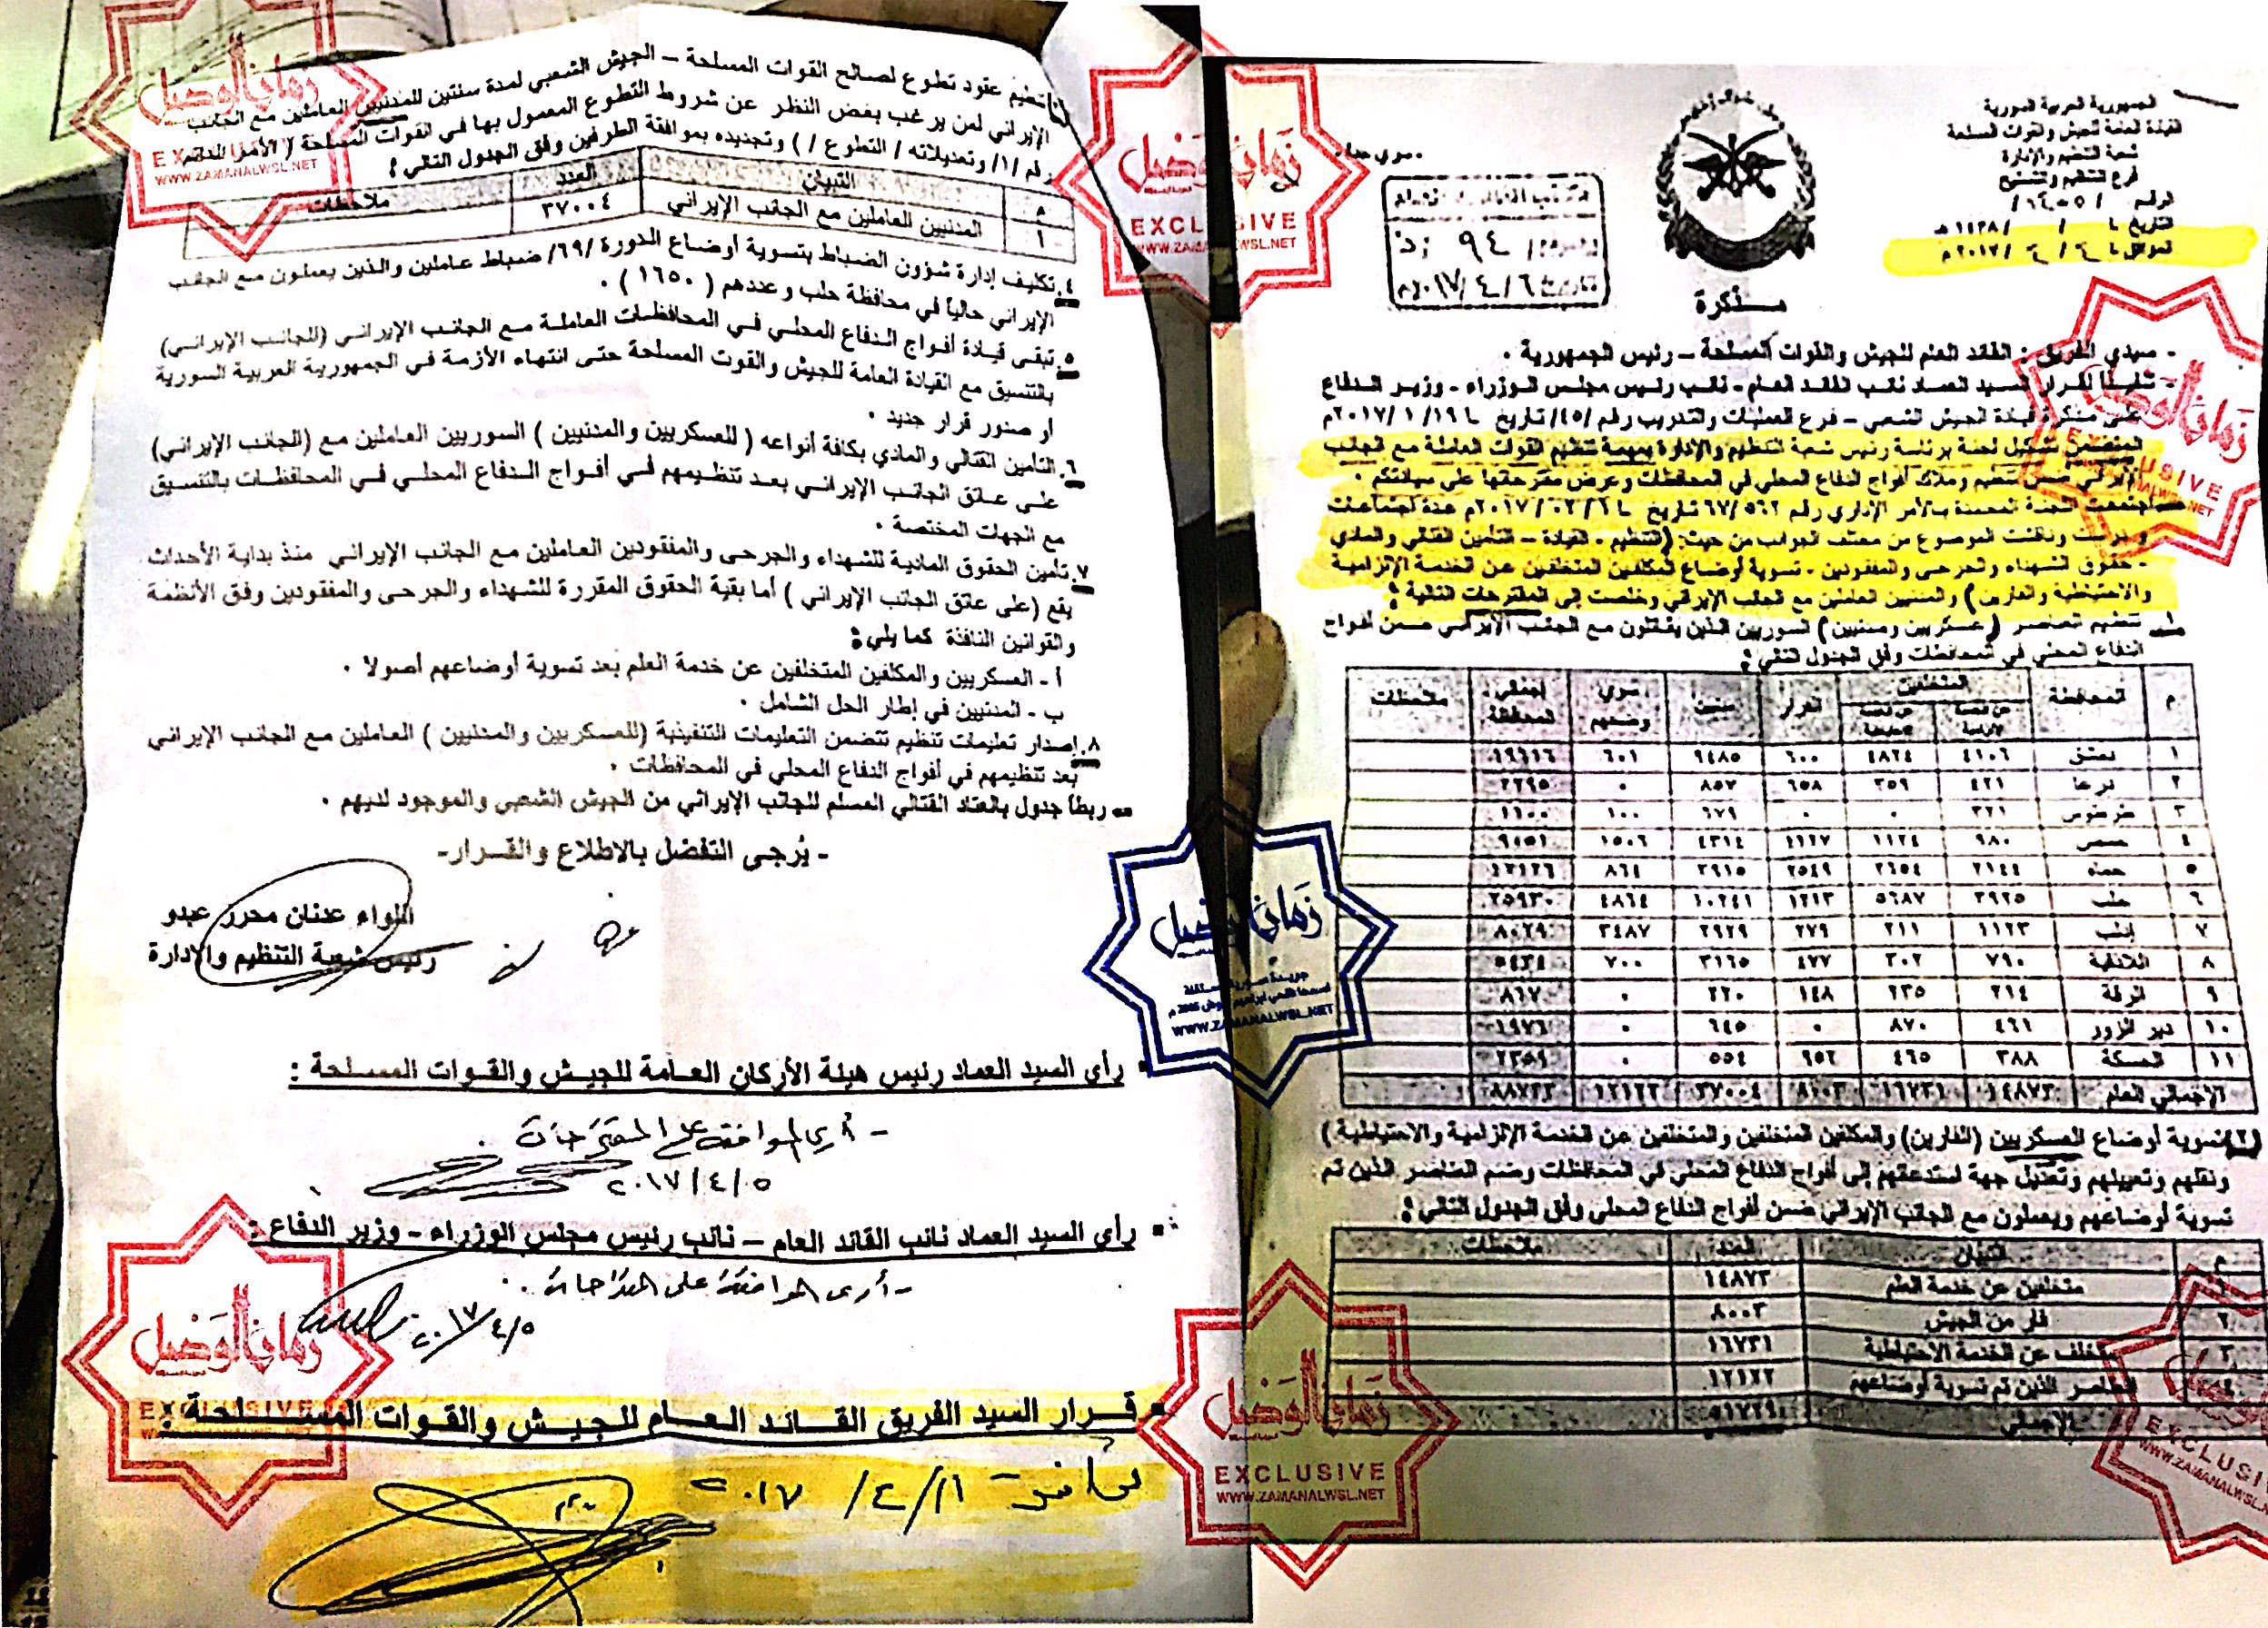 الجمهورية العربية السورية
القيادة العامة للجيش والقوات المسلحة
شعبة التنظيم والإدارة
فرع التنظيم والتسليح
الرقم /
التاريخ / / ١٤٣٨ هـ
الموافق ٢٠١٧ م
٩٤
٢٠١٧/٤/٦م
مـــذكرة
- سيدي الفريق : القائد العام للجيش والقوات المسلحة – رئيس الجمهورية .
- تنفيذاً لقرار السيد العماد نائب القائد العام - نائب رئيس مجلس الوزراء - وزير الدفاع
على مذكرة قيادة الجيش الشعبي – فرع العمليات والتدريب رقم /٤٥/ تاريخ ٢٠١٧/١/١٩م
المتضمن تشكيل لجنة برئاسة رئيس شعبة التنظيم والإدارة بمهمة تنظيم القوات العاملة مع الجانب
الإيراني ضمن تنظيم وملاك أفواج الدفاع المحلي في المحافظات وعرض مقترحاتها على سيادتكم .
- اجتمعت اللجنة المحددة بالأمر الإداري رقم ٦٧/٥٦٢ تاريخ ٢٠١٧/٠٢/٦م عدة اجتماعات
ودرست وناقشت الموضوع من مختلف الجوانب من حيث: (التنظيم - القيادة – التأمين القتالي والمادي
- حقوق الشهداء والجرحى والمفقودين - تسوية أوضاع المكلفين المتخلفين عن الخدمة الإلزامية
والاحتياطية والفارين) والمدنيين العاملين مع الجانب الإيراني وخلصت إلى المقترحات التالية :
١ـ تنظيم العناصر (عسكريين ومدنيين) السوريين الذين يقاتلون مع الجانب الإيراني ضمن أفواج
الدفاع المحلي في المحافظات وفق الجدول التالي :
م المحافظة المتخلفين الفرار مدنيين سوي وضعهم إجمالي المحافظة ملاحظات
عن الخدمة الإلزامية عن الخدمة الاحتياطية
١ دمشق ٤١٠٦ ٤٨٢٤ ٦٠٠ ٩٤٨٥ ٦٠١ ١٩٦١٦
٢ درعا ٤٢١ ٣٥٩ ٦٥٨ ٨٥٧ ٠ ٢٢٩٥
٣ طرطوس ٣٢١ ٠ ٠ ٦٧٩ ١٠٠ ١١٠٠
٤ حمص ٩٨٠ ١١٢٤ ١١٢٧ ٤٣١٤ ١٥٠٦ ٩٠٥١
٥ حماه ٢١٤٤ ٢٦٥٤ ٢٥٤٩ ٣٩١٥ ٨٦٤ ١٢١٢٦
٦ حلب ٣٩٢٥ ٥٦٨٧ ١٢١٣ ١٠٢٤١ ٤٨٦٤ ٢٥٩٣٠
٧ إدلب ١١٢٣ ٢١١ ٢٧٩ ٢٩٢٩ ٣٤٨٧ ٨٠٢٩
٨ اللاذقية ٧٩٠ ٣٠٢ ٤٧٧ ٣١٦٥ ٧٠٠ ٥٤٣٤
٩ الرقة ٢١٤ ٢٣٥ ١٤٨ ٢٧٠ ٠ ٨٦٧
١٠ دير الزور ٤٦١ ٨٧٠ ٠ ٦٤٥ ٠ ١٩٧٦
١١ الحسكة ٣٨٨ ٤٦٥ ٩٥٢ ٥٥٤ ٠ ٢٣٥٩
الإجمالي العام ١٤٨٧٣ ١٦٧٣١ ٨٠٠٣ ٣٧٠٠٤ ١٢١٢٢ ٨٨٧٣٣
٢ـ تسوية أوضاع العسكريين (الفارين) والمكلفين المتخلفين والمتخلفين عن الخدمة الإلزامية والاحتياطية )
ونقلهم وتعيينهم وتعديل جهة استدعائهم إلى أفواج الدفاع المحلي في المحافظات وضم العناصر الذين تم
تسوية أوضاعهم ويعملون مع الجانب الإيراني ضمن أفواج الدفاع المحلي وفق الجدول التالي :
م التبيان العدد ملاحظات
١ متخلفين عن خدمة العلم ١٤٨٧٣
٢ فار من الجيش ٨٠٠٣
٣ متخلف عن الخدمة الاحتياطية ١٦٧٣١
٤ العناصر الذين تم تسوية أوضاعهم ١٢١٢٢
الإجمالي ٥١٧٢٩
تنظيم عقود تطوع لصالح القوات المسلحة – الجيش الشعبي لمدة سنتين للمدنيين العاملين مع الجانب
الإيراني لمن يرغب بغض النظر عن شروط التطوع المعمول بها في القوات المسلحة ( الأمر الدائم
رقم /١/ وتعديلاته / التطوع / ) وتجديده بموافقة الطرفين وفق الجدول التالي :
م التبيان العدد ملاحظات
١ المدنيين العاملين مع الجانب الإيراني ٣٧٠٠٤
٤. تكليف إدارة شؤون الضباط بتسوية أوضاع الدورة /٦٩/ ضباط عاملين والذين يعملون مع الجانب
الإيراني حالياً في محافظة حلب وعددهم ( ١٦٥٠ ) .
٥. تبقى قيادة أفواج الدفاع المحلي في المحافظات العاملة مع الجانب الإيراني (للجانب الإيراني)
بالتنسيق مع القيادة العامة للجيش والقوات المسلحة حتى انتهاء الأزمة في الجمهورية العربية السورية
أو صدور قرار جديد .
٦. التأمين القتالي والمادي بكافة أنواعه ( للعسكريين والمدنيين ) السوريين العاملين مع (الجانب الإيراني)
على عاتق الجانب الإيراني بعد تنظيمهم في أفواج الدفاع المحلي في المحافظات بالتنسيق
مع الجهات المختصة .
٧. تأمين الحقوق المادية للشهداء والجرحى والمفقودين العاملين مع الجانب الإيراني منذ بداية الأحداث
يقع (على عاتق الجانب الإيراني ) أما بقية الحقوق المقررة للشهداء والجرحى والمفقودين وفق الأنظمة
والقوانين النافذة كما يلي :
أ - العسكريين والمكلفين المتخلفين عن خدمة العلم بعد تسوية أوضاعهم أصولا .
ب - المدنيين في إطار الحل الشامل .
٨. إصدار تعليمات تنظيم تتضمن التعليمات التنفيذية (للعسكريين والمدنيين ) العاملين مع الجانب الإيراني
بعد تنظيمهم في أفواج الدفاع المحلي في المحافظات .
ربطاً جدول بالعتاد القتالي المسلم للجانب الإيراني من الجيش الشعبي والموجود لديهم .
- يُرجى التفضل بالاطلاع والقرار-
اللواء عدنان محرز عبدو
رئيس شعبة التنظيم والإدارة
رأي السيد العماد رئيس هيئة الأركان العامة للجيش والقوات المسلحة :
- أرى الموافقة على المقترحات .
٢٠١٧/٤/٥
رأي السيد العماد نائب القائد العام – نائب رئيس مجلس الوزراء - وزير الدفاع :
- أرى الموافقة على المقترحات .
٢٠١٧/٤/٥
قرار السيد الفريق القائد العام للجيش والقوات المسلحة :
موافق ٢٠١٧/٤/١١
زمان الوصل
EXCLUSIVE
WWW.ZAMANALWSL.NET